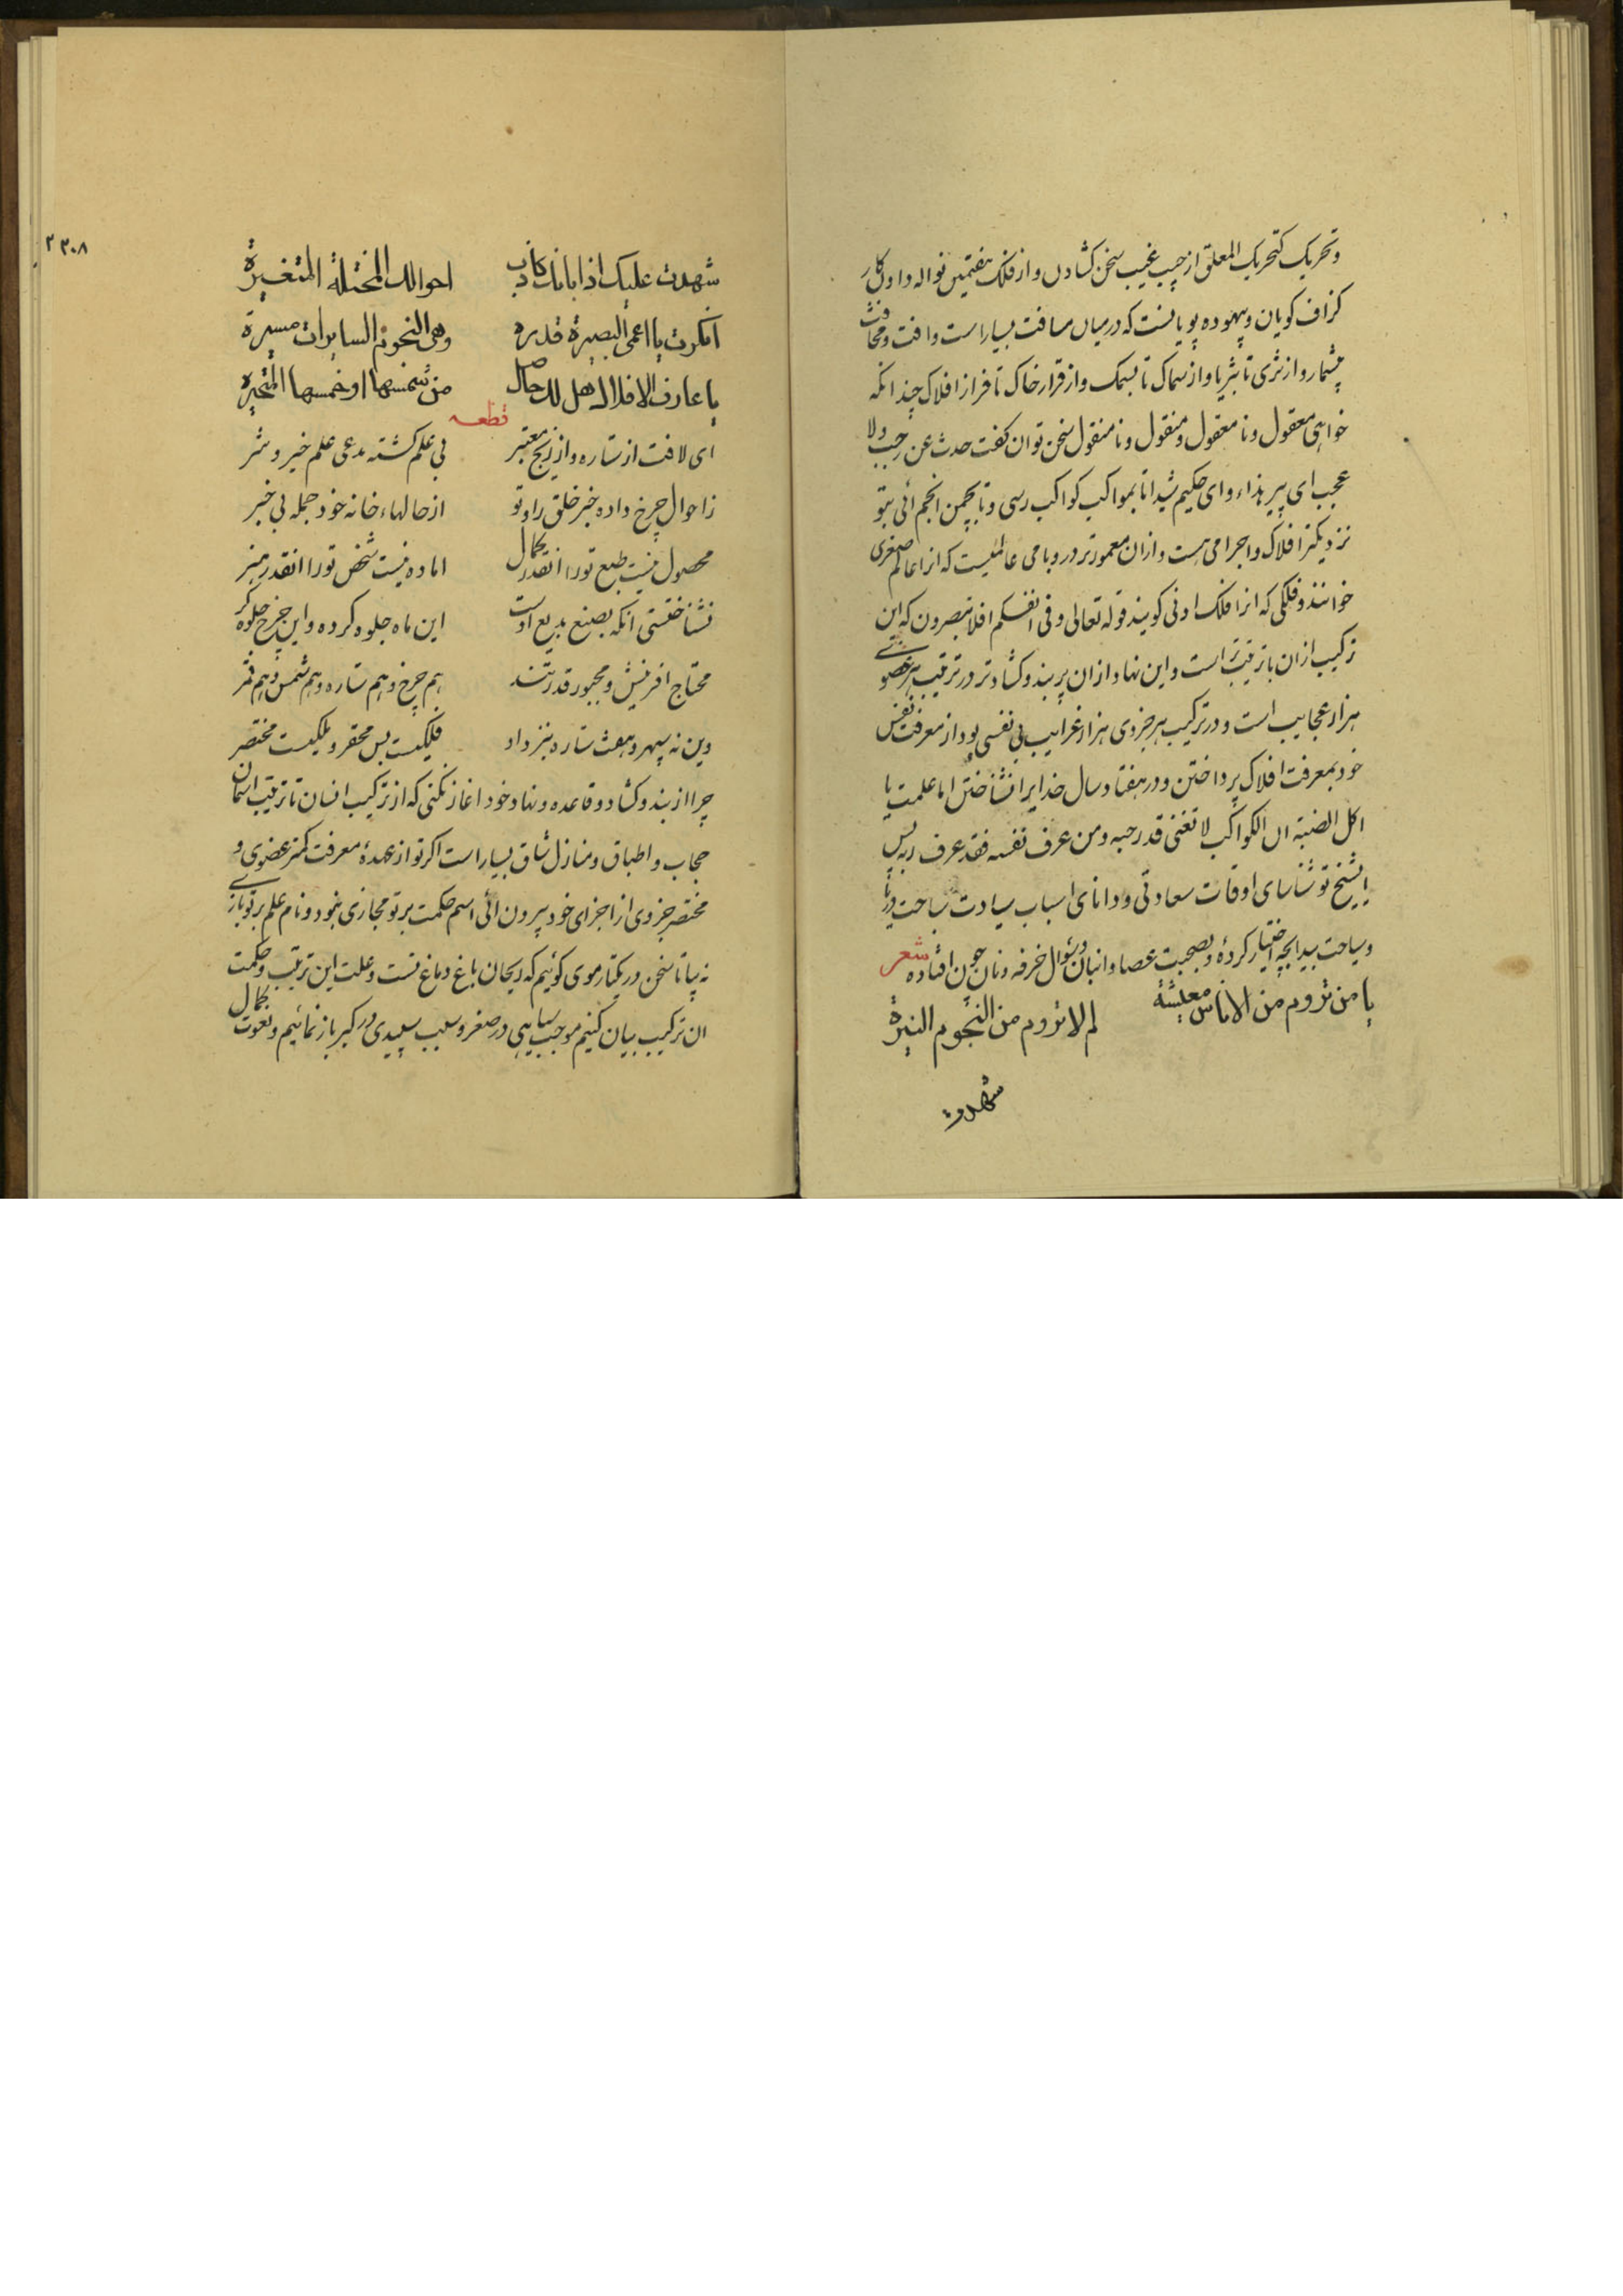 و تحریک کتحریک المعلق از جیب غیب سخن کشادن و از فلک هفتمین نواله دادن کار
کزاف کویان و بیهوده پویانست که درمیان مسافت بسیار است و افت و مخافت
بیشمار و از ثری تا بثریا و از سماک تا بسمک و از قرار خاک تا فراز افلاک چندانکه
خواهی معقول و نا معقول و منقول و نا منقول سخن توان کفت حدث عن رجب ولا
عجب ای پیر هذاء و ای حکیم شیدا تا بمواکب کواکب رسی و تا بچمن انجم ائی بتو
نزدیکتر افلاک و اجرامی هست و ازان معمورتر در و بامی عالمیست که انرا عالم صغری
خوانند و فلکی که انرا فلک ادنی کویند قوله تعالی و فی انفسکم افلا تبصرون که این
ترکیب ازان با ترتیب تر است و این نهاد ازان پر بند و کشادتر در ترتیب هر عضوی
هزار عجایب است و در ترکیب هر جزوی هزار غرایب بی نفسی بود از معرفت نفس
خود بمعرفت افلاک پرداختن و در هفتاد سال خدایرا نشناختن اما علمت یا
اکل الضبة ان الکواکب لا تغنی قدر حبه و من عرف نفسه فقد عرف ربه پس
ایشیخ تو شناسای اوقات سعادتی و دانای اسباب سیادت سباحت دریا
و سیاحت بیدا بچه اختیار کردهٔ و بصحبت عصا و انبان و بسوال خرفه و نان چون افتاده شعر
یا من تروم من الاناس معیشة لم لا تروم من النجوم النیرة
شهدت
۲۰۸
شهدت علیک اذا بانک کاذب احوالک المختلة المتغیرة
انکرت یا اعمی البصیرة قدره وهی النجوم السایرات مسیرة
یا عارف الافلاک هل لک حاصل من شمسها او خمسها المتحیره
قطعه
ای لافت از ستاره و از زیج معتبر بی علم کشته مدعی علم خیر و شر
ز احوال چرخ داده خبر خلق را و تو از حالهاء خانه خود جمله بی خبر
محصول نیست طبع تورا انقدر کمال اماده نیست شخص تورا انقدر هنر
نشناختستی انکه بصنع بدیع اوست این ماه جلوه کرده و این چرخ جلوه کر
محتاج افرینش و مجبور قدرتند هم چرخ و هم ستاره و هم شمس و هم قمر
وین نه سپهر و هفت ستاره بنزد او فلکیست بس محقر و ملکیست مختصر
چرا از بند و کشاد و قاعده و نهاد خود اغاز نکنی که از ترکیب انسان تا ترتیب اسمان
حجاب و اطباق و منازل شاق بسیار است اکر تو از عهدهٔ معرفت کمتر عضوی و
مختصر جزوی از اجزای خود بیرون ائی اسم حکمت بر تو مجازی نبود و نام علم بر تو بازی
نه بیا تا سخن در یکتار موی کوئیم که ریحان باغ دماغ تست و علت این ترتیب و حکمت
ان ترکیب بیان کنیم موجب سیاهی در صغر و سبب سپیدی در کبر باز نمائیم و نعوت کمال